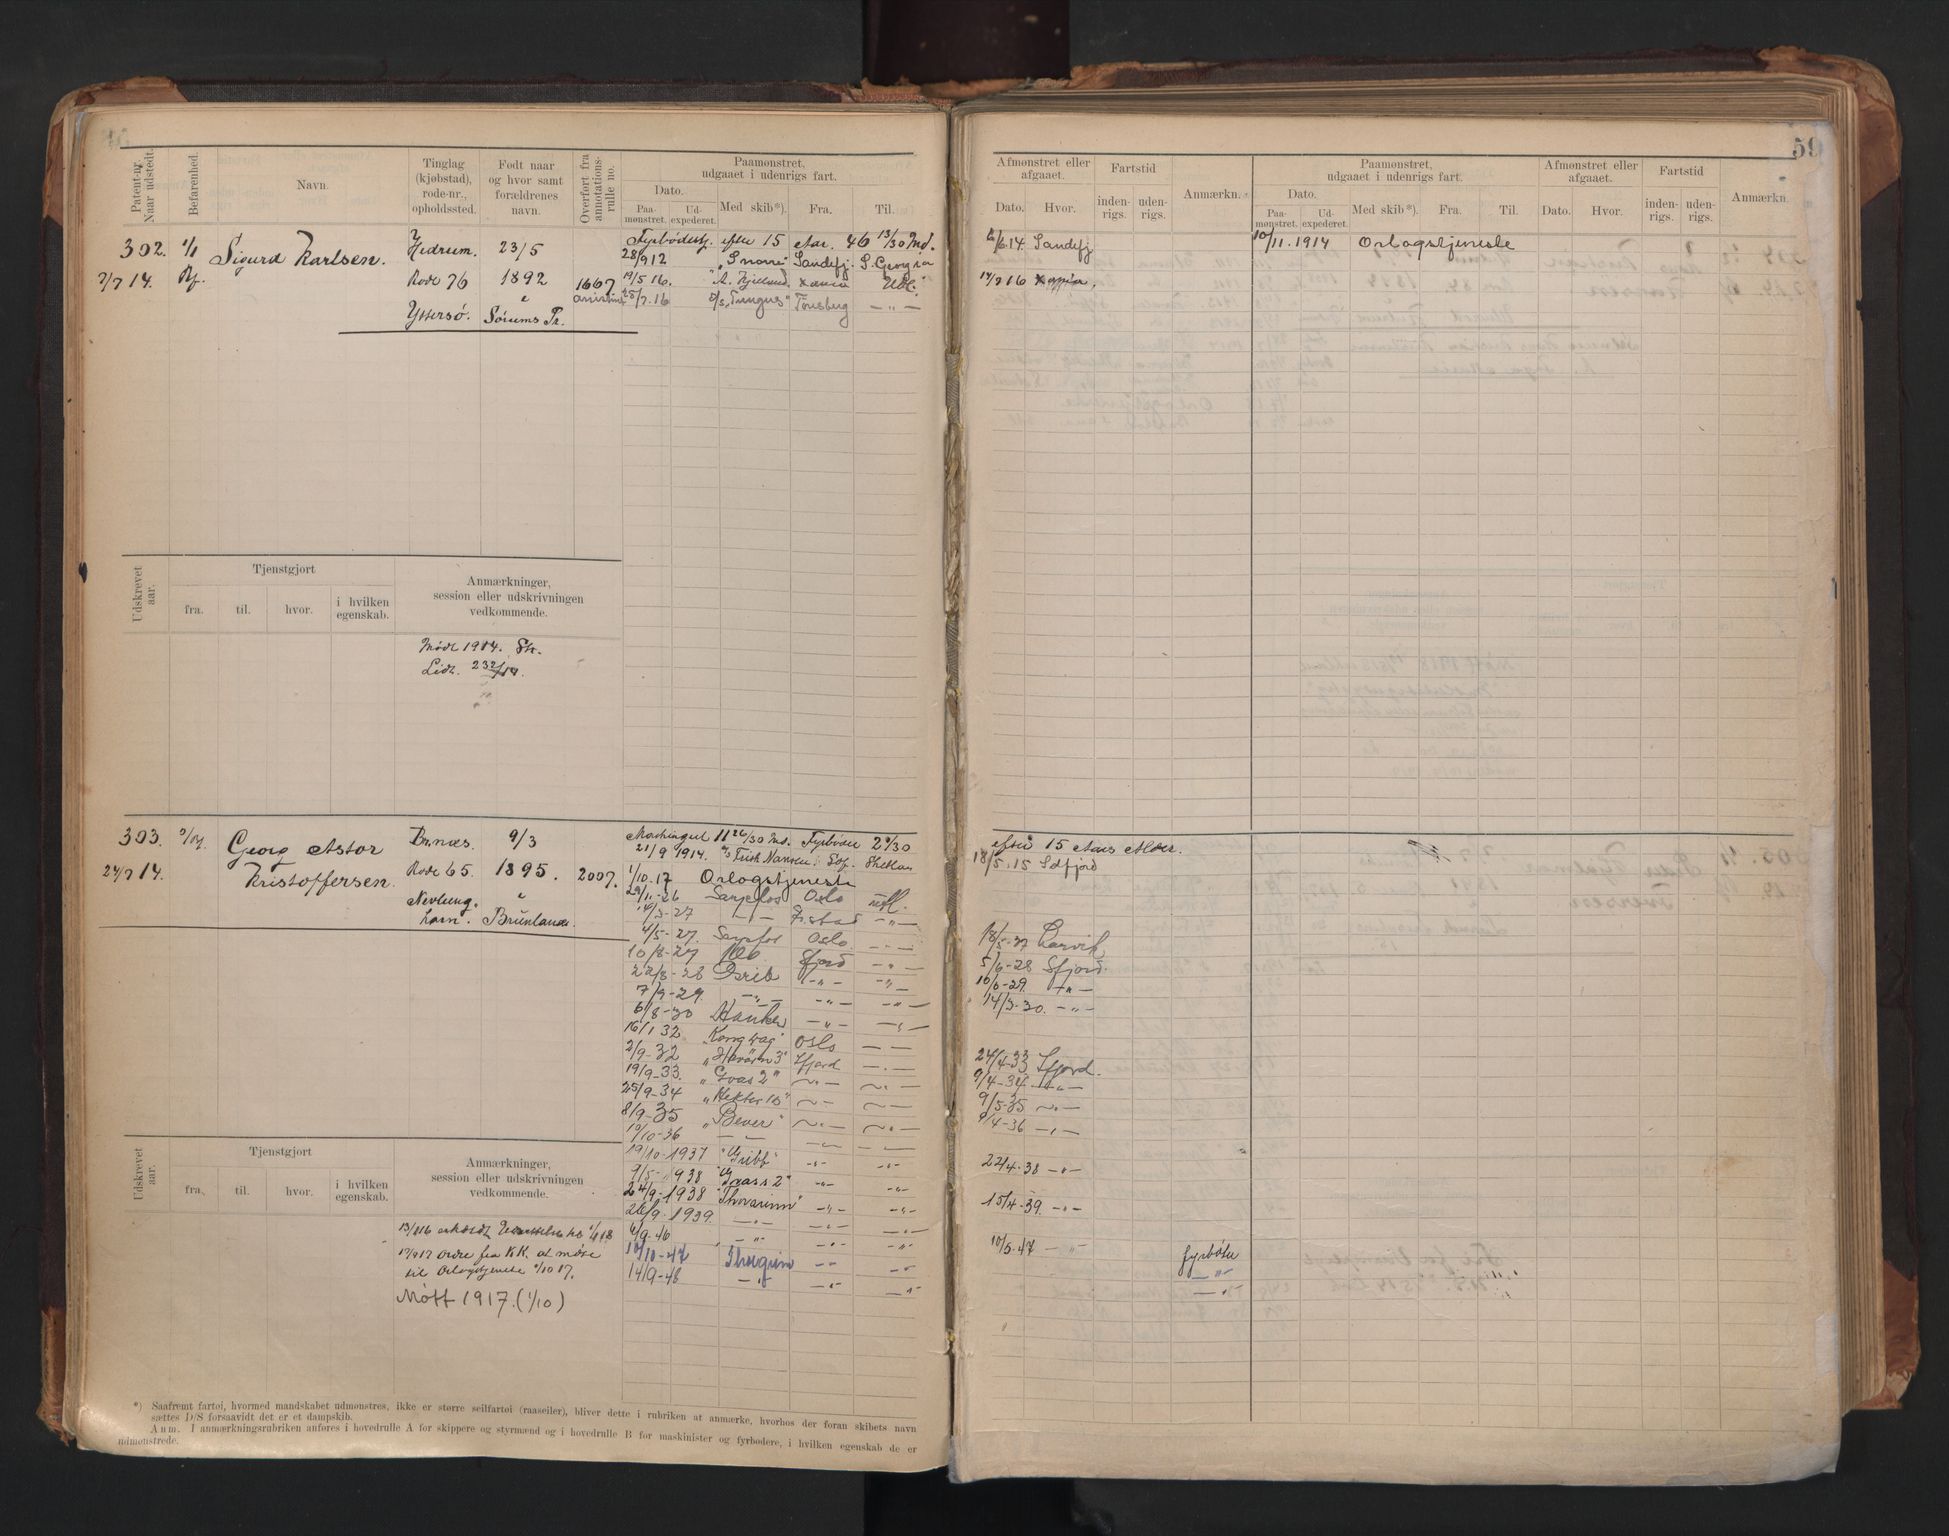 59
Patent-nr. Naar udstedt.
Befarenhed.
Navn.
Tinglag (kjøbstad), rode-nr., opholdssted.
Født naar og hvor samt forældrenes navn.
Overført fra annotations-rulle no.
Paamønstret, udgaaet i udenrigs fart.
Dato.
Paa-mønstret.
Ud-expederet.
Med skib*).
Fra.
Til.
Afmønstret eller afgaaet.
Dato.
Hvor.
Fartstid
inden-rigs.
uden-rigs.
Anmærkn.
Paamønstret, udgaaet i udenrigs fart.
Dato.
Paa-mønstret.
Ud-expederet.
Med skib*).
Fra.
Til.
Afmønstret eller afgaaet.
Dato.
Hvor.
Fartstid
inden-rigs.
uden-rigs.
Anmærkn.
302. 1/1 Sigurd Karlsen. Hedrum. 23/5
Rode 76 1892 1667.
Yttersø. Sørums Pr.
Fyrbødertj. efter 15 Aar. 46 13/30 Md.
28/9 12 "Snorre" Sandefj. S. Georgia 6/6 14 Sandefj
19/5 16. "A. Kjelland Xania Udl. 14/7 16 Xania.
25/7.16 D/s "Tungus" Tønsberg — " —
10/11.1914 Orlogstjeneste
Udskrevet aar.
Tjenstgjort
fra. til. hvor. i hvilken egenskab.
Anmærkninger, session eller udskrivningen vedkommende.
Mødt 1914.
Lidt. 232/14.
303. Georg Astor Kristoffersen. Brunlanæs. 9/3
24/7 14. Rode 65. 1895. 2007.
Nevlung-havn. Brunlanæs.
Maskingut 11 26/30 Md. Fyrbøter 2 9/30
efter 15 Aars Alder.
21/9 1914. D/s Fritk Nansen: Sdf. Shetlan 18/5.15 Sdfjord
1/10.17 Orlogstjeneste
29/11-26 Sarpfos Oslo utl.
14/3-27 — " —
4/5-27. Sarpfos Oslo — " — 18/5-27 Larvik
10/8-27 Sfjord — " — 5/6-28 Sfjord.
22/8-28 Grib — " — — " — 10/6-29. — " —
7/9-29. — " — — " — — " — 14/3-30. — " —
6/8-30 — " — — " —
16/1 32 "Kong Oslo — " —
2/9-32 3" Sfjord — " — 24/4-33 Sfjord.
19/9-33. "Gvas 2" — " — — " — 9/4-34 — " —
25/9-34 "Hektor 10" — " — — " — 9/5-35 — " —
8/9-35 "Bever" — " — — " — 9/4-36 — " —
10/10-36 — " — — " — — " —
19/10-1937 "Gribb" — " — — " — 22/4-38 — " —
9/5-1938 "Gvass 2" — " — — " —
24/9-1938 "Thorarinn" — " — — " — 15/4-39. — " —
26/9-1939. — " — — " — — " —
6/9-46 — " — — " — — " — 10/5.47 — " — fyrbøter
10/10-47 Thorgrim — " — — " — — " —
14/9-48 — " — — " — — " — — " —
Udskrevet aar.
Tjenstgjort
fra. til. hvor. i hvilken egenskab.
Anmærkninger, session eller udskrivningen vedkommende.
17/9 17 Ordre fra KK. at møde
til Orlogstjeneste 1/10 17.
Møtt 1917. (1/10)
*) Saafremt fartøi, hvormed mandskabet udmønstres, ikke er større seilfartøi (raaseiler), bliver dette i rubriken at anmærke, hvorhos der foran skibets navn
sættes D/S forsaavidt det er et dampskib.
Anm. I anmærkningsrubriken anføres i hovedrulle A for skippere og styrmænd og i hovedrulle B for maskinister og fyrbødere, i hvilken egenskab de er
udmønstrede.